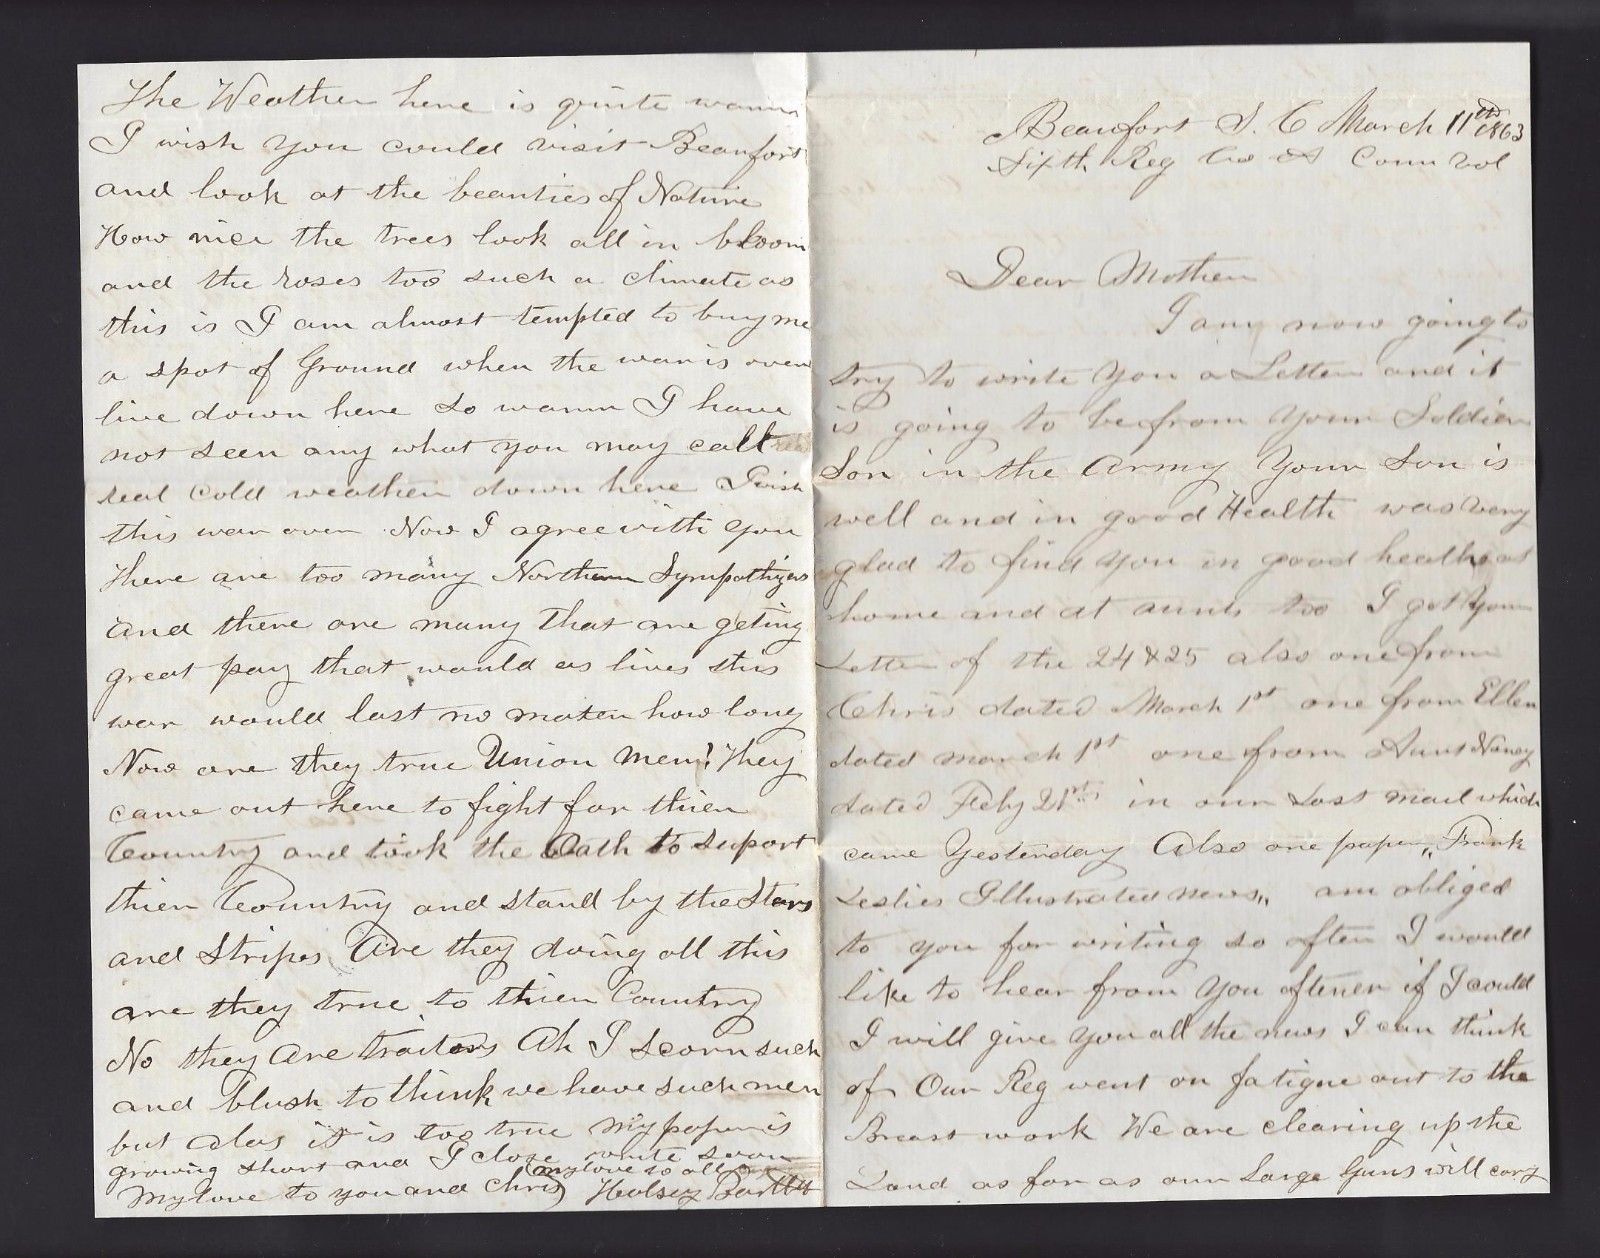 Beaufort S. C March 11th 1863
Sixth Reg Co A Conn Vol
Dear Mother
I am now going to
try to write you a Letter and it
is going to be from your Soldier
Son in the Army Your Son is
well and in good Health was very
glad to find you in good health at
home and at aunts too I got your
Letter of the 24 & 25 also one from
Chris dated March 1st one from Ellen
dated march 1st one from Aunt Nancy
dated Feby 21st in our Last mail which
came Yesterday Also one paper „Frank
Leslies Illustrated news„ am obliged
to you for writing so often I would
like to hear from you oftener if I could
I will give you all the news I can think
of Our Reg went on fatigue out to the
Breast work We are clearing up the
Land as far as our Large Guns will cary
The Weather here is quite warm
I wish you could visit Beaufort
and look at the beauties of Nature
How nice the trees look all in bloom
and the roses too such a climate as
this is I am almost tempted to buy me
a spot of Ground when the war is over
live down here so warm I have
not seen any what you may call
real cold weather down here I wish
this war over Now I agree with you
there are too many Northern Sympathizers
and there are many that are geting
great pay that would as lives this
war would last no mater how long
Now are they true Union men? They
came out here to fight for thier
Country and took the Oath to suport
thier Country and stand by the Stars
and Stripes Are they doing all this
are they true to thier Country
No they are traitors Ah I scorn such
and blush to think we have such men
but alas it is too true my paper is
growing short and I close write soon
my love to all
My love to you and Chris Halsey Bartlett